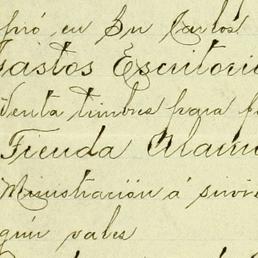 en Sn Carlos
Gastos Escritorio
Venta timbres para
Tienda Alam
Ministración á
gún vales